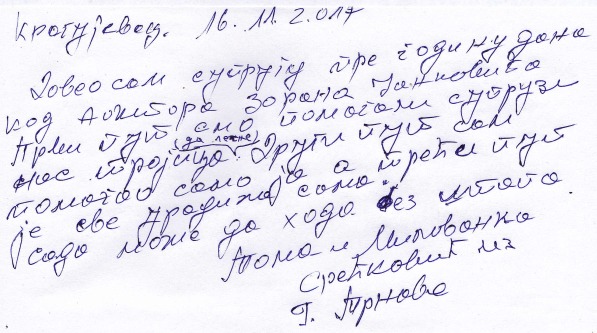 Крагујевац. 16. 11. 2.017
Довео сам супругу пре годину дана
код доктора Зорана Јанковића
Први пут смо помогали супрузи
нас тројица (да легне). Други пут сам
помогао само ја а трећи пут
је све урадила сама.
Сада може да хода без штапа.
Тома и Миловонка
Срећковић из
Г. Трнаве